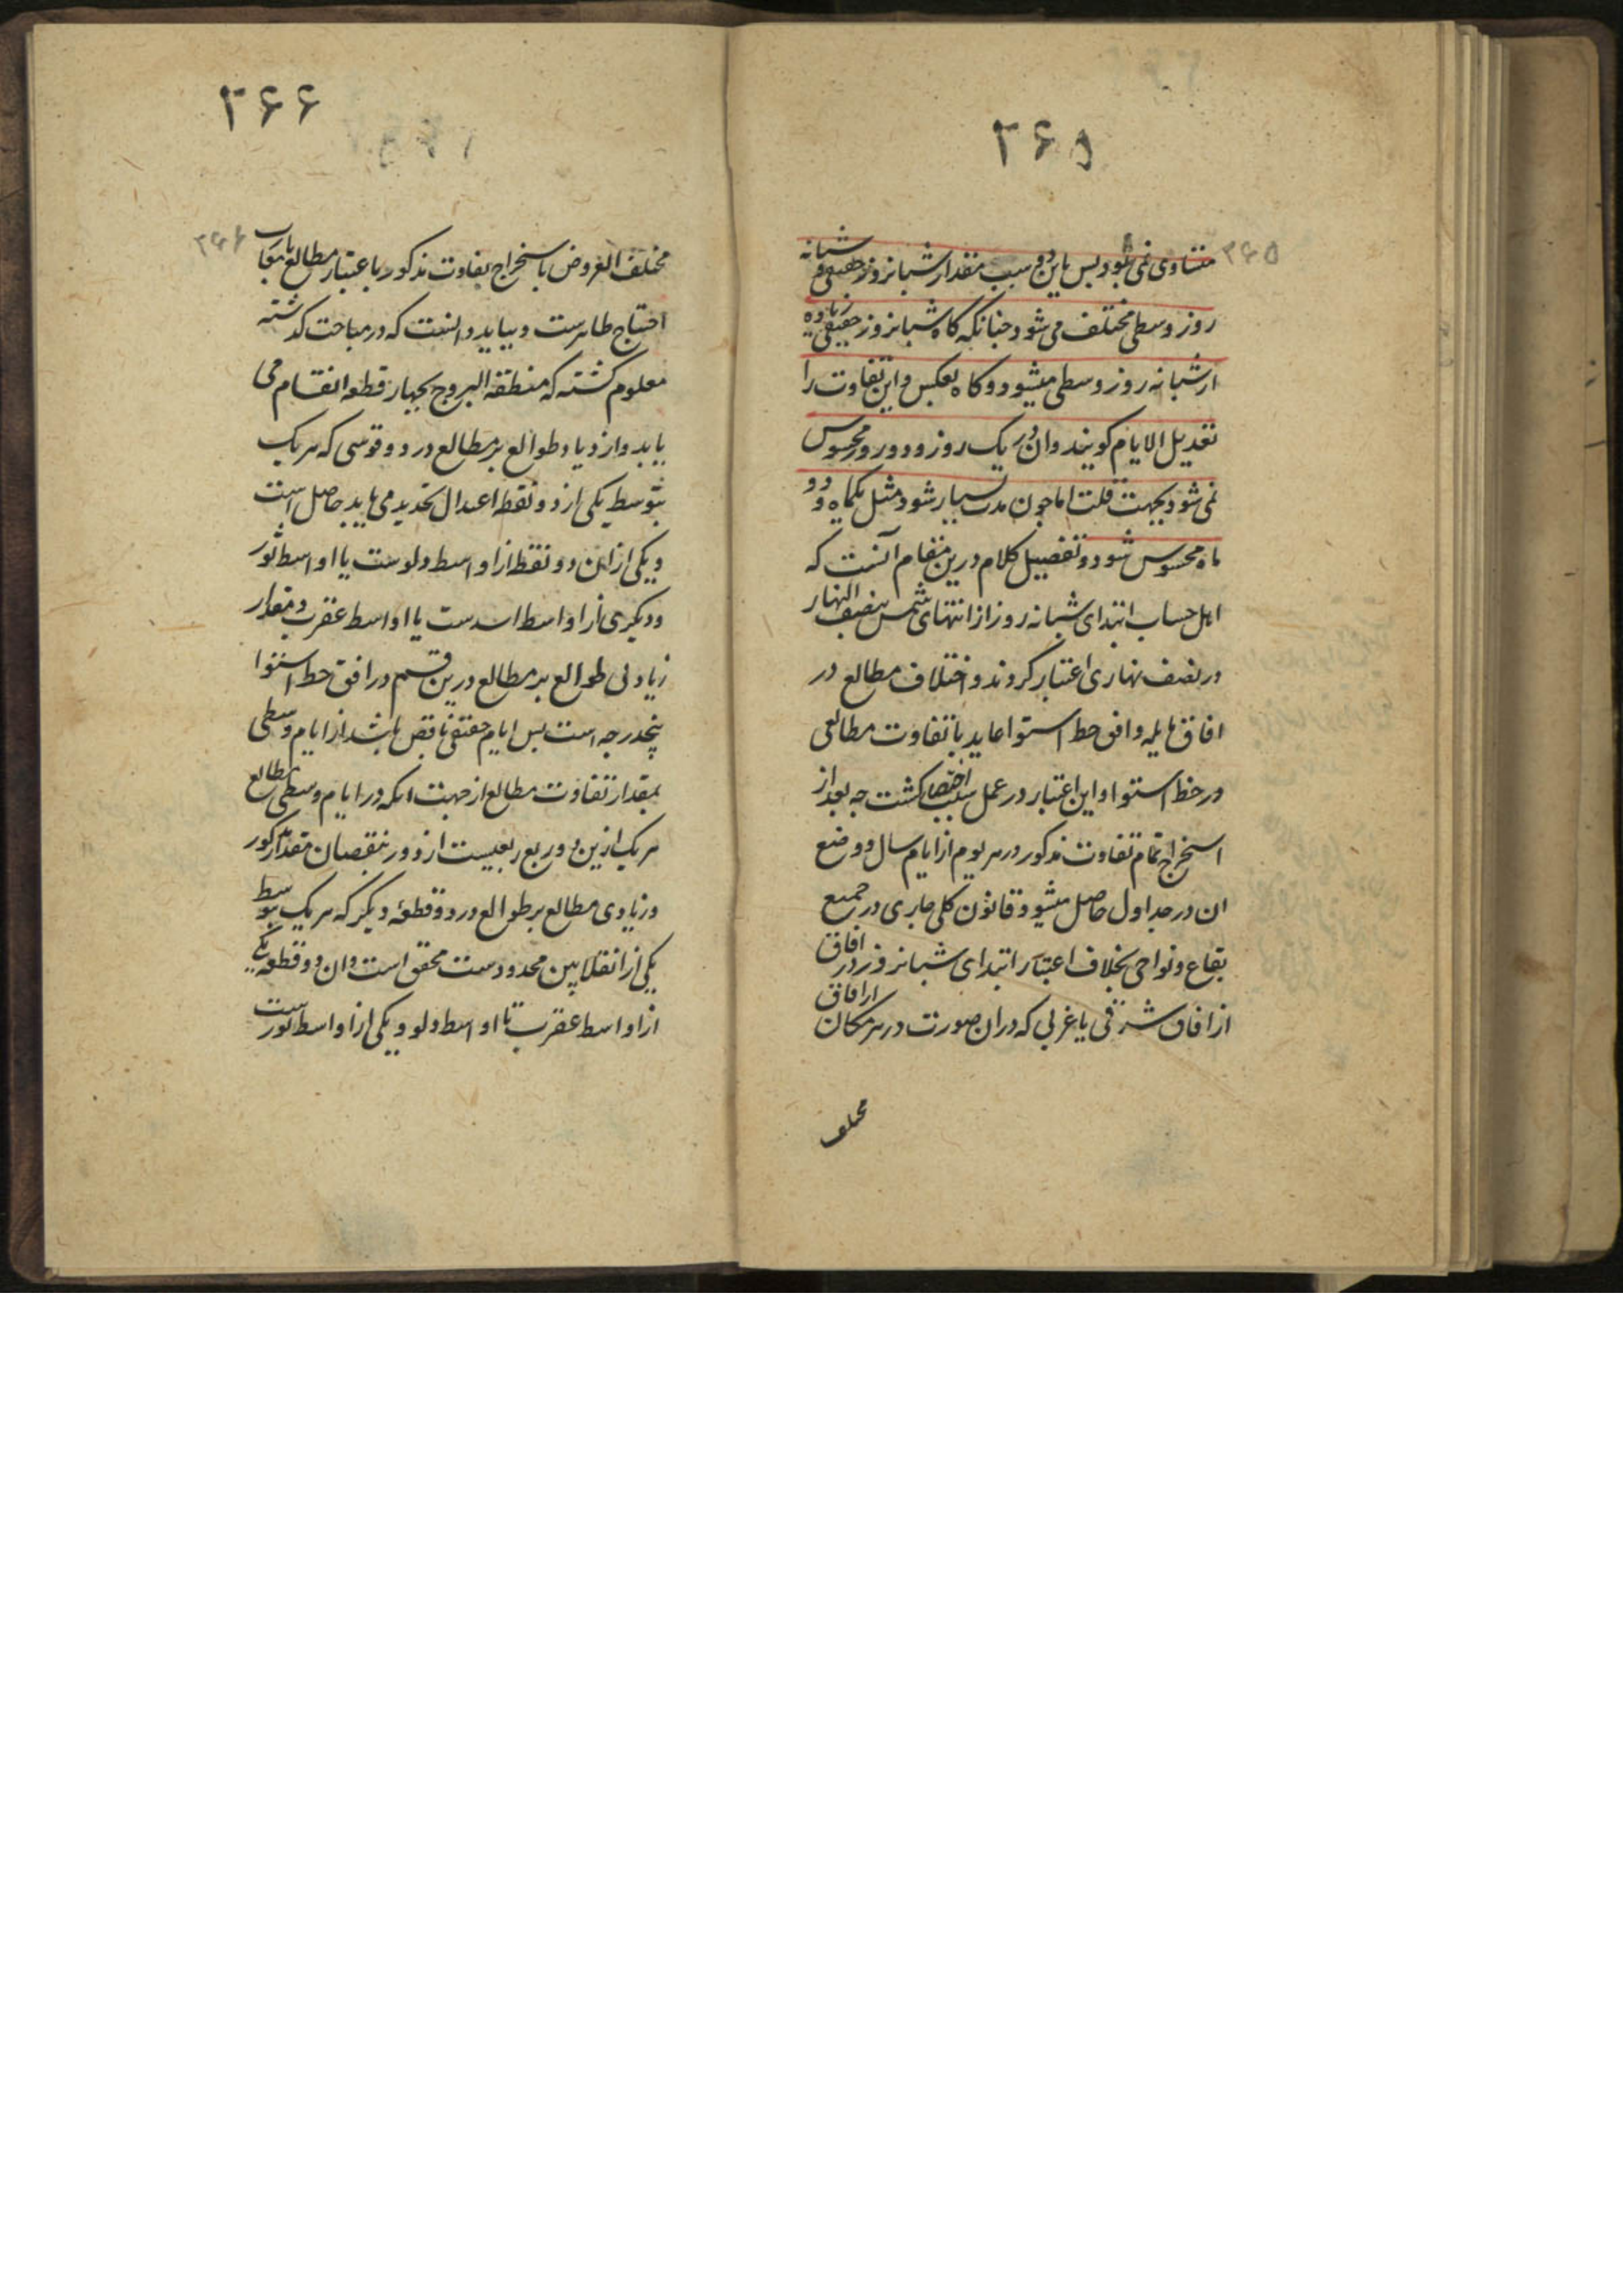 ۳۶۵
۳۶۵
متساوی نمی شود پس باین دو سبب مقدار شبانروز حقیقی و شبانه
روز وسطی مختلف می شود چنانکه کاه شبانروز حقیقی زیاده
از شبانه روز وسطی میشود و کاه بعکس و این تفاوت را
تعدیل الایام کویند و ان در یک روز و دو روز محسوس
نمی شود بجهت قلت اما چون مدت بسیار شود مثل یکماه و دو
ماه محسوس شود و تفصیل کلام درین مقام آنست که
اهل حساب ابتدای شبانه روز از انتهای شمس بنصف النهار
در نصف نهاری اعتبار کردند و اختلاف مطالع در
افاق مایله و افق خط استوا عاید با تفاوت مطالعی
در خط استوا و این اعتبار در عمل سبب اختصار کشت چه بعد از
استخراج تمام تفاوت مذکور در هر یوم از ایام سال و وضع
ان در جداول حاصل میشود قانون کلی جاری در جمیع
بقاع و نواحی بخلاف اعتبار ابتدای شبانروز در افاق
از افاق شرقی یا غربی که در ان صورت در هر مکان از افاق
مختلف
۳۶۶
۳۶۶
مختلف العروض باستخراج تفاوت مذکور باعتبار مطالع
احتیاج ظاهرست و بباید دانست که در مباحث کذشته
معلوم کشته که منطقة البروج بچهار قطعه انقسام می
یابد و ازدیاد طوالع بر مطالع در دو قوسی که هر یک
بتوسط یکی از دو نقطه اعتدال تحدید می یابد حاصل است
و یکی از ان دو نقطه از اواسط دلوست یا اواسط ثور
و دیکری از اواسط اسدست یا اواسط عقرب و مقدار
زیادتی طوالع بر مطالع درین قسم در افق خط استوا
پنجدرجه است پس ایام حقیقی ناقص باشد از ایام وسطی
بمقدار تفاوت مطالع از جهت انکه در ایام وسطی مطالع
هر یک ازین دو ربع ربعیست از دور بنقصان مقدار مذکور
و زیادی مطالع بر طوالع در دو قطعه دیکر که هر یک بتوسط
یکی از انقلابین محدودست محقق است و ان دو قطعه یکی
از اواسط عقرب تا اواسط دلو و یکی از اواسط ثورست